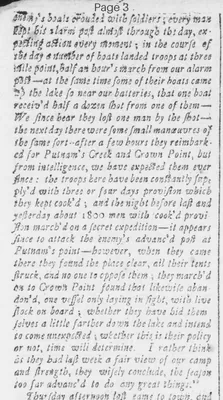 Page 3
enemy's boats crouded with soldiers; every man
kept his alarm post almost through the day, ex-
pecting action every moment; in the course of
the day a number of boats landed troops at three
mile point, half an hour's march from our alarm
post—at the same time some of their boats came
the lake so near our batteries, that one boat
receiv'd half a dozen shot from one of them—
We since hear they lost one man by the shot—
the next day there were some small manœuvres of
the same sort—after a few hours they reimbark-
ed for Putnam's Creek and Crown Point, but
from intelligence, we have expected them ever
since: the troops here have been constantly sup-
ply'd with three or four days provision which
they kept cook'd; and the night before last and
yesterday about 1800 men with cook'd provi-
sion march'd on a secret expedition—it appears
since to attack the enemy's advanc'd post at
Putnam's point—however, when they came
there they found the place clear, all their tents
struck, and no one to oppose them; they march'd
on to Crown Point found that likewise aban-
don'd, one vessel only laying in sight, with live
stock on board; whether they have hid them
selves a little farther down the lake and intend
to come unexpected; whether this is their policy
or not, time will determine. I rather think
as they had last week a fair view of our camp
and strength, they wisely conclude, the season
too far advanc'd to do any great things."
Thursday afternoon last came to town, and